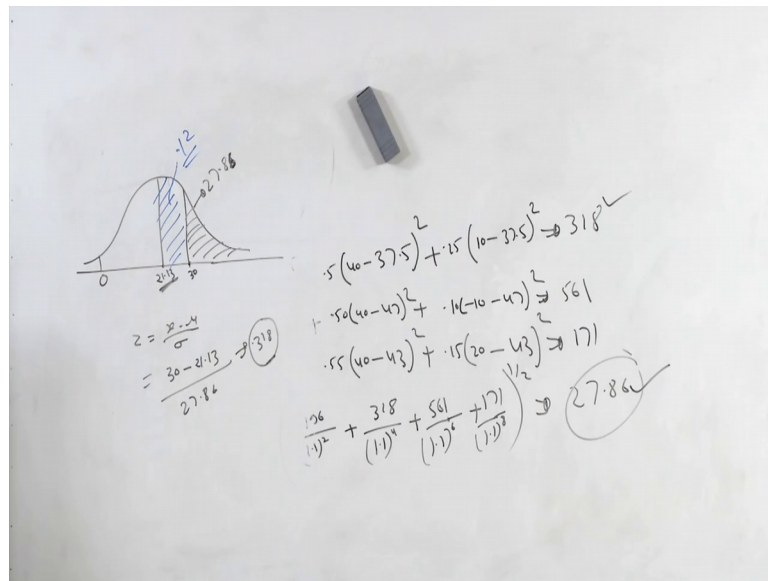 .12
27.86
0 21.13 30
z = x-μ/σ
= 30-21.13/27.86 ⇒ .318
.5(40-37.5)² + .25(10-37.5)² ⇒ 318
.50(40-47)² + .10(-10-47)² ⇒ 561
.55(40-43)² + .15(20-43)² ⇒ 171
/(1.1)² + 318/(1.1)⁴ + 561/(1.1)⁶ + 171/(1.1)⁸)^1/2 ⇒ 27.86